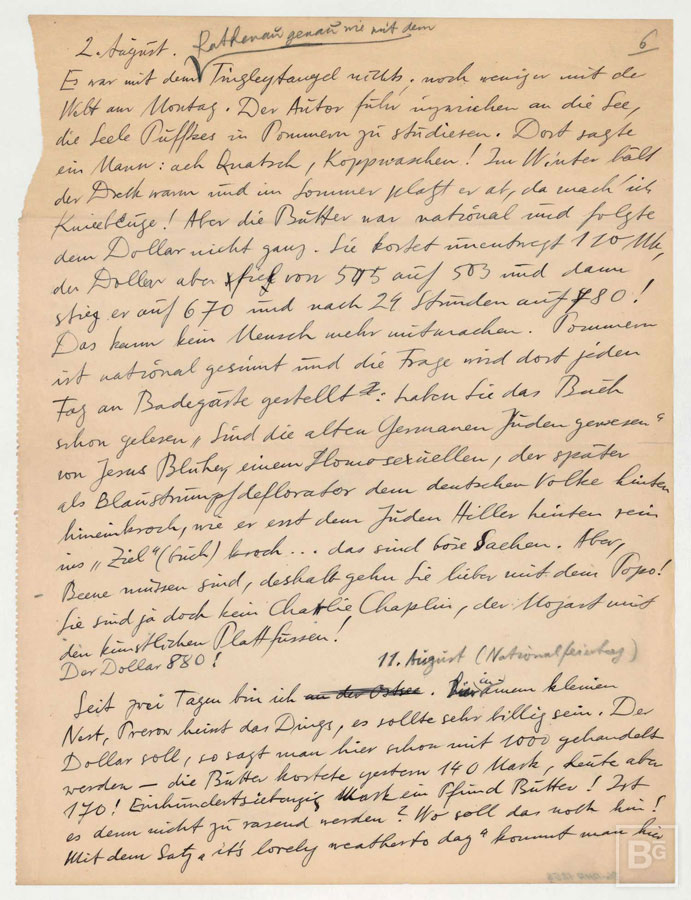 2. August. Rathenau genau wie mit dem
6
Es war mit dem Tingeltangel nichts, noch weniger mit der
Welt am Montag. Der Autor fuhr inzwischen an die See,
die Seele Puffkes in Pommern zu studieren. Dort sagte
ein Mann: ach Quatsch, Koppwaschen! Im Winter hält
der Dreck warm und im Sommer platzt er ab, da mach' ich
Kniebeuge! Aber die Butter war national und folgte
dem Dollar nicht ganz. Sie kostet unentwegt 110 Mk,
der Dollar aber fiel von 545 auf 503 und dann
stieg er auf 670 und nach 24 Stunden auf 780!
Das kann kein Mensch mehr mitmachen. Pommern
ist national gesinnt und die Frage wird dort jeden
Tag an Badegäste gestellt: haben Sie das Buch
schon gelesen „Sind die alten Germanen Juden gewesen“
von Jesus Blüher, einem Homosexuellen, der später
als Blaustrumpfdeflorator dem deutschen Volke hinten
hineinkroch, wie er erst dem Juden Hiller hinten rein
ins „Ziel“ (buch) kroch... das sind böse Sachen. Aber,
Beene müssen sind, deshalb gehn Sie lieber mit dem Popo!
Sie sind ja doch kein Charlie Chaplin, der Mozart mit
den künstlichen Plattfüssen!
Der Dollar 880!
11. August (Nationalfeiertag)
Seit zwei Tagen bin ich an der Ostsee. Hier in einem kleinen
Nest, Prerow heisst das Dings, es sollte sehr billig sein. Der
Dollar soll, so sagt man hier schon mit 1000 gehandelt
werden – die Butter kostete gestern 140 Mark, heute aber
170! Einhundertsiebenzig Mark ein Pfund Butter! Ist
es denn nicht zu rasend werden? Wo soll das noch hin!
Mit dem Satz „it's lorely weatherto dag“ kommt man hier
BG